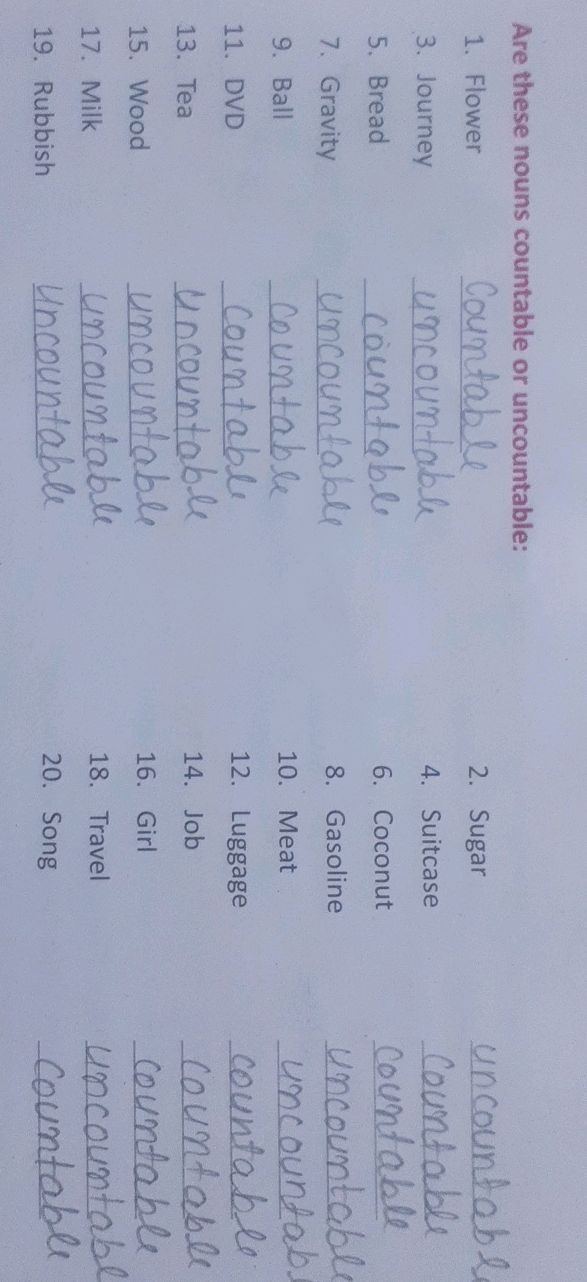 Are these nouns countable or uncountable:
1. Flower Countable 2. Sugar uncountabl
3. Journey uncountable 4. Suitcase Countable
5. Bread countable 6. Coconut Countable
7. Gravity uncountable 8. Gasoline uncountable
9. Ball Countable 10. Meat uncountab
11. DVD Countable 12. Luggage countable
13. Tea Uncountable 14. Job Countable
15. Wood uncountable 16. Girl Countable
17. Milk uncountable 18. Travel Uncountabl
19. Rubbish Uncountable 20. Song Countable